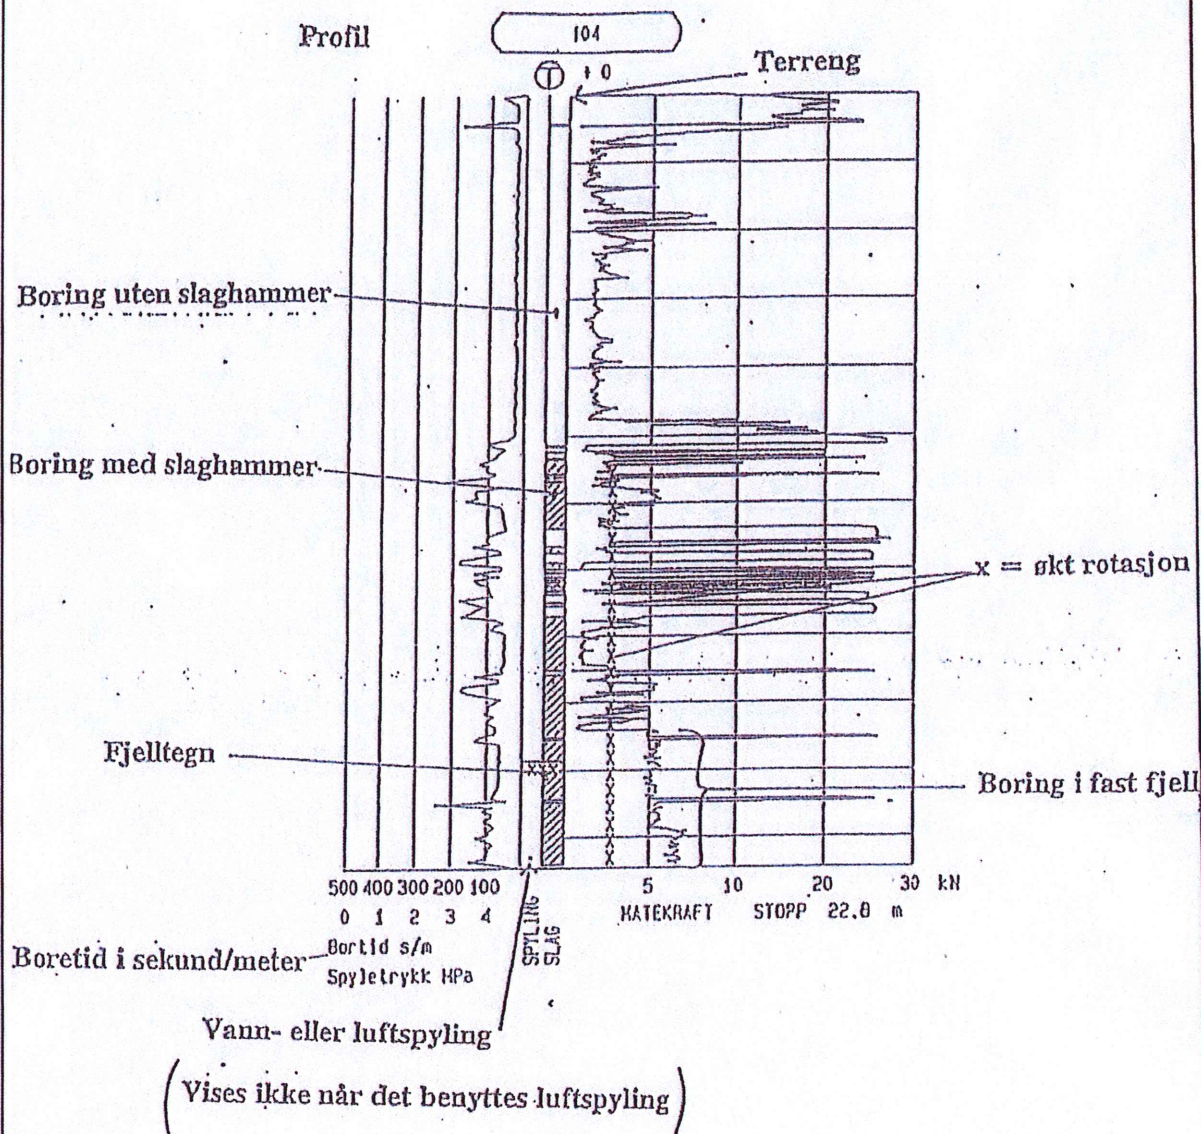 Profil
104
T + 0
Terreng
Boring uten slaghammer
Boring med slaghammer
x = økt rotasjon
Fjelltegn
x
Boring i fast fjell
500 400 300 200 100
5 10 20 30 kN
0 1 2 3 4
MATEKRAFT STOPP 22.8 m
SPYLING
SLAG
Boretid i sekund/meter
Bortid s/m
Spyletrykk MPa
Vann- eller luftspyling
(Vises ikke når det benyttes luftspyling)